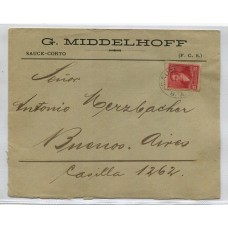 G. MIDDELHOFF
SAUCE-CORTO (F. C. S.)
Señor
Antonio Merzbacher
Buenos Aires
Casilla 1262.